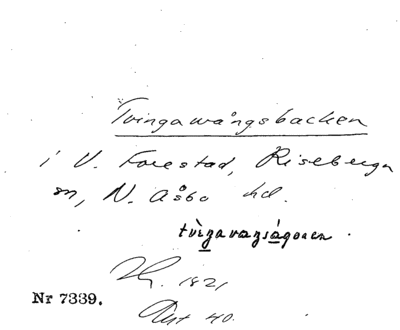 Tvingavångsbacken
i V. Forestad, Riseberga
sn, N. Åsbo hd.
1821
Nr 7339.
Akt 40.